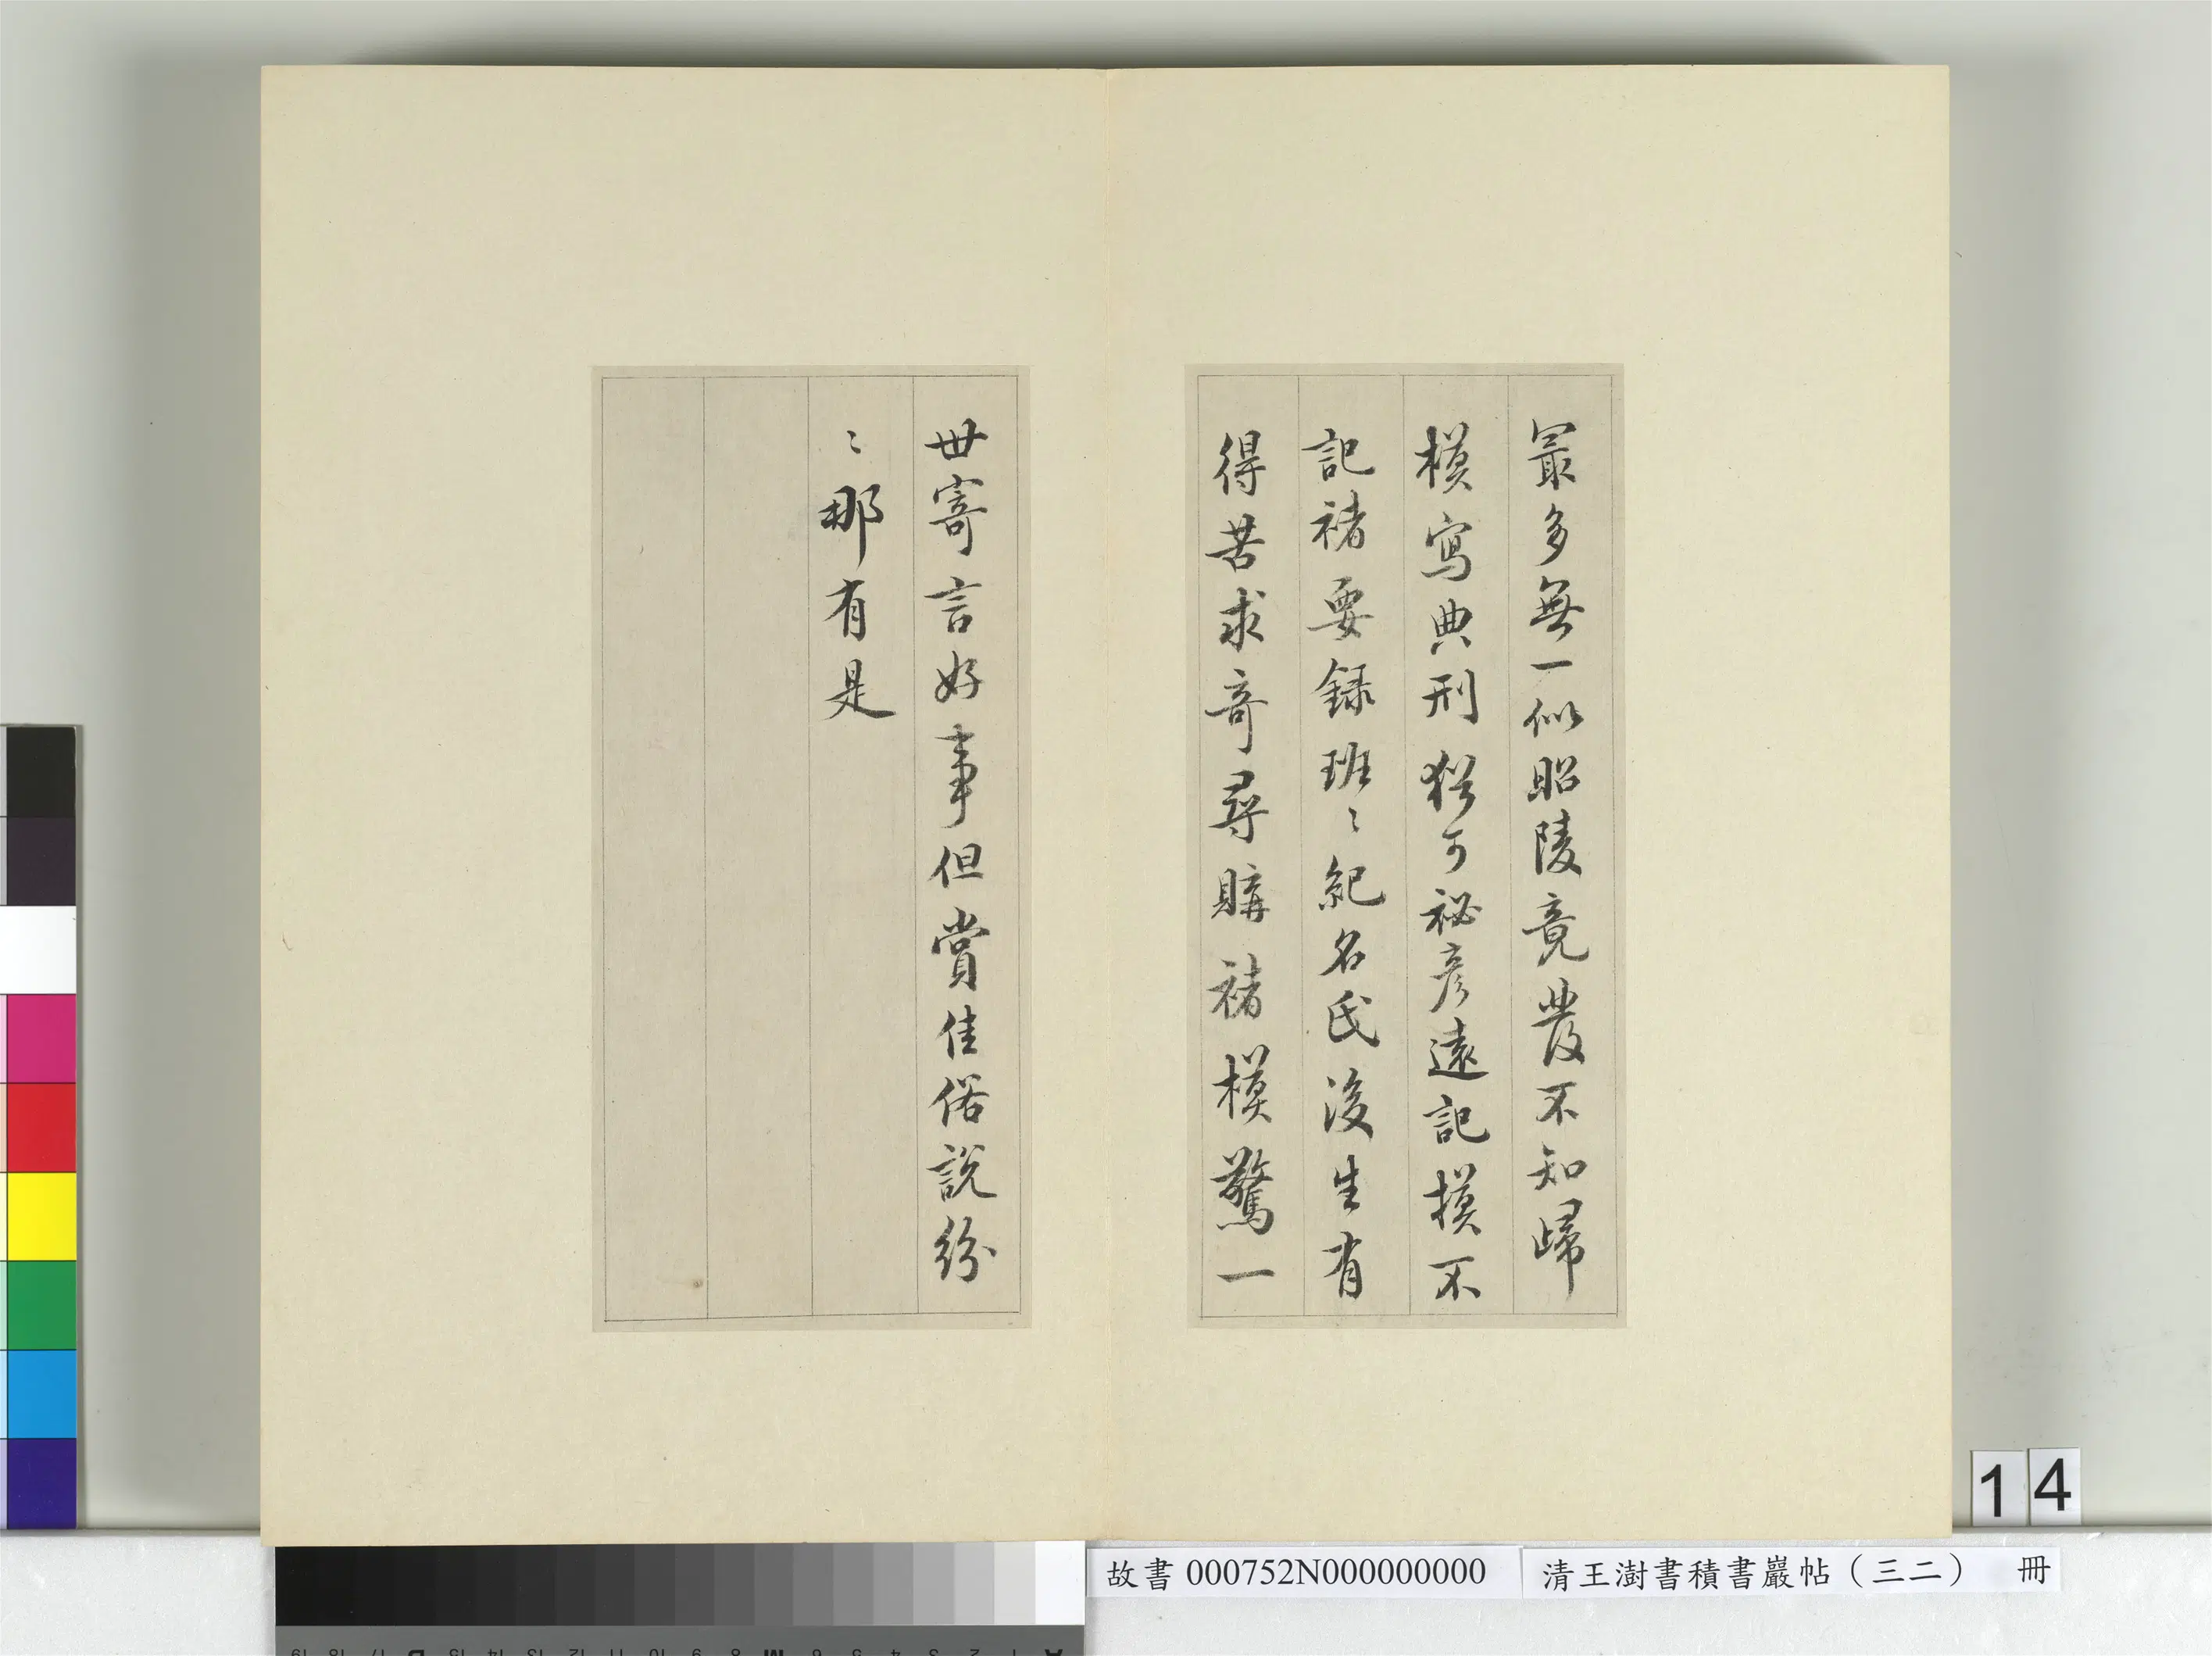 最多無一似昭陵竟發不知歸
模寫典刑猶可祕彥遠記摸不
記褚要録班〻紀名氏後生有
得苦求奇尋購褚模驚一
世寄言好事但賞佳俗說紛
〻那有是
14
故書 000752N000000000
清王澍書積書巖帖（三二） 冊